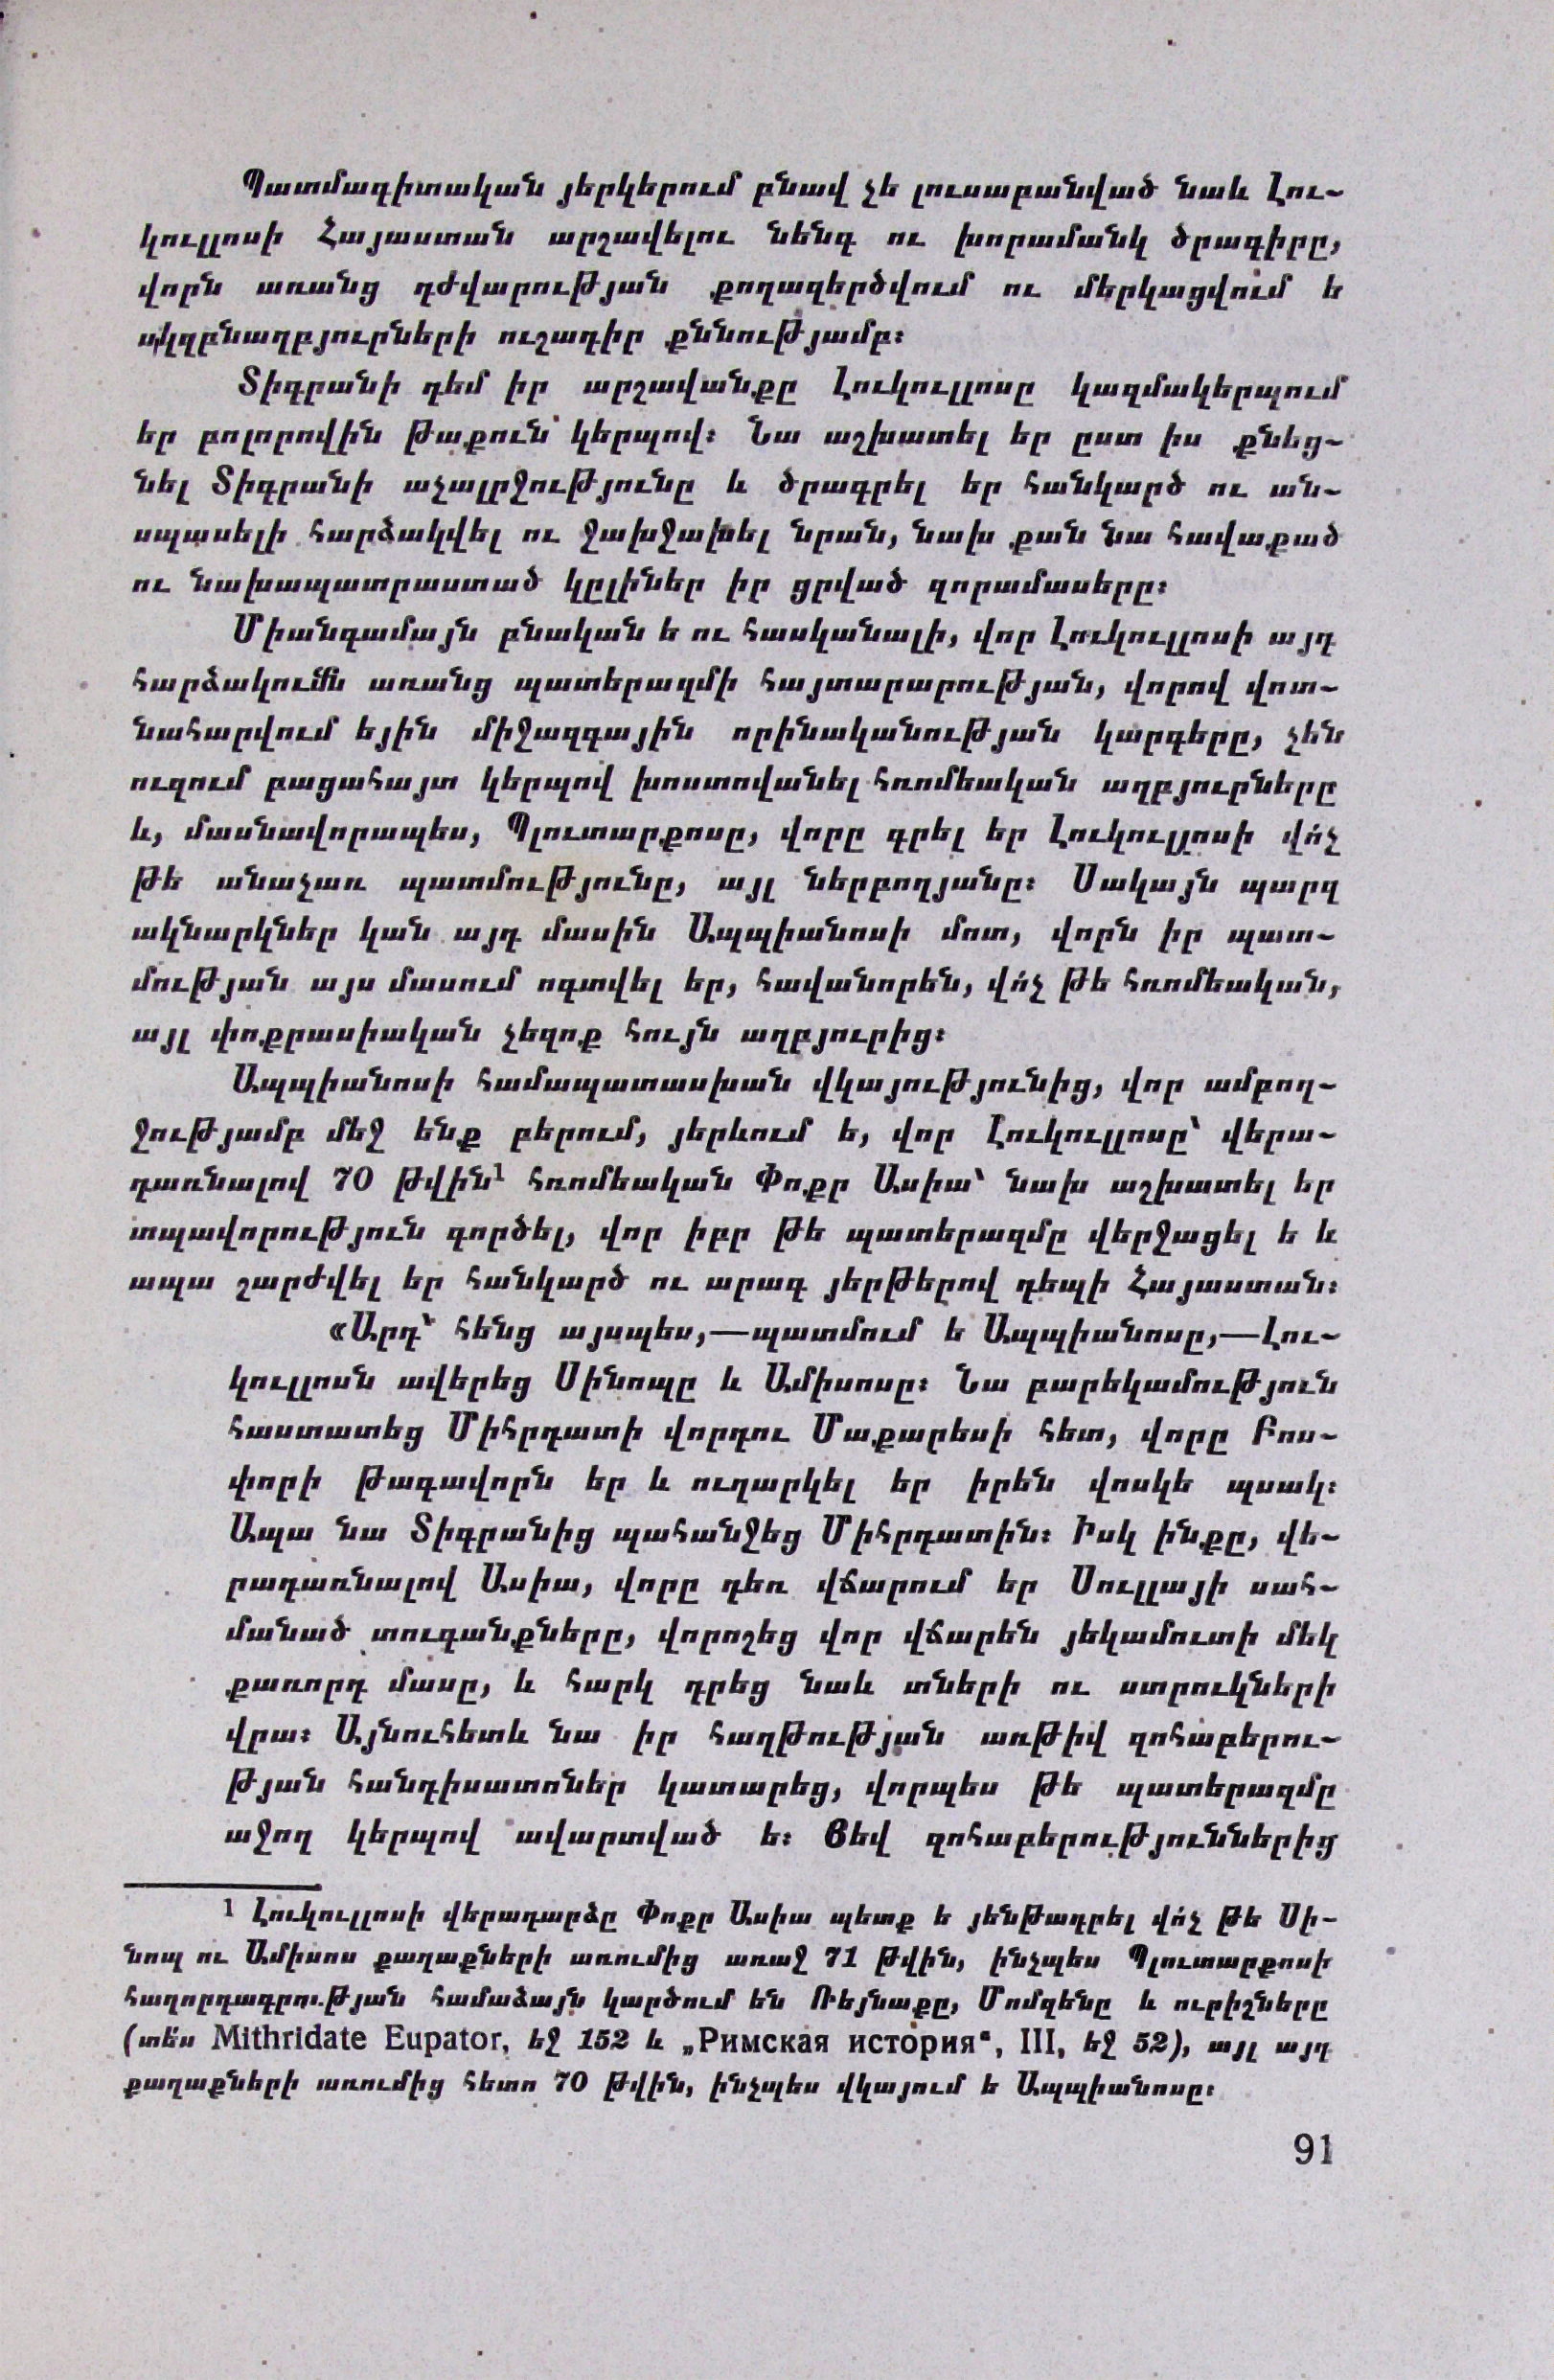 Պատմագիտական յերկերում բնավ չե լուսաբանված նաև Լու-
կուլլոսի Հայաստան արշավելու նենգ ու խորամանկ ծրագիրը,
վորն առանց դժվարության քողազերծվում ու մերկացվում ե
սկզբնաղբյուրների ուշադիր քննությամբ։
Տիգրանի դեմ իր արշավանքը Լուկուլլոսը կազմակերպում
եր բոլորովին թաքուն կերպով։ Նա աշխատել եր ըստ իս քնեց-
նել Տիգրանի աչալրջությունը և ծրագրել եր հանկարծ ու ան-
սպասելի հարձակվել ու ջախջախել նրան, նախ քան նա հավաքած
ու նախապատրաստած կըլիներ իր ցրված զորամասերը։
Միանգամայն բնական ե ու հասկանալի, վոր Լուկուլլոսի այդ
հարձակումն առանց պատերազմի հայտարարության, վորով վոտ-
նահարվում եյին միջազգային որինականության կարգերը, չեն
ուզում բացահայտ կերպով խոստովանել հռոմեական աղբյուրները
և, մասնավորապես, Պլուտարքոսը, վորը գրել եր Լուկուլլոսի վո՛չ
թե անաչառ պատմությունը, այլ ներբողյանը։ Սակայն պարզ
ակնարկներ կան այդ մասին Ապպիանոսի մոտ, վորն իր պատ-
մության այս մասում ոգտվել եր, հավանորեն, վո՛չ թե հռոմեական,
այլ փոքրասիական չեզոք հույն աղբյուրից։
Ապպիանոսի համապատասխան վկայությունից, վոր ամբող-
ջությամբ մեջ ենք բերում, յերևում ե, վոր Լուկուլլոսը՝ վերա-
դառնալով 70 թվին¹ հռոմեական Փոքր Ասիա՝ նախ աշխատել եր
տպավորություն գործել, վոր իբր թե պատերազմը վերջացել ե և
ապա շարժվել եր հանկարծ ու արագ յերթերով դեպի Հայաստան։
«Արդ՝ հենց այսպես,—պատմում ե Ապպիանոսը,—Լու-
կուլլոսն ավերեց Սինոպը և Ամիսոսը։ Նա բարեկամություն
հաստատեց Միհրդատի վորդու Մաքարեսի հետ, վորը Բոս-
փորի թագավորն եր և ուղարկել եր իրեն վոսկե պսակ։
Ապա նա Տիգրանից պահանջեց Միհրդատին։ Իսկ ինքը, վե-
րադառնալով Ասիա, վորը դեռ վճարում եր Սուլլայի սահ-
մանած տուգանքները, վորոշեց վոր վճարեն յեկամուտի մեկ
քառորդ մասը, և հարկ դրեց նաև տների ու ստրուկների
վրա։ Այնուհետև նա իր հաղթության առթիվ զոհաբերու-
թյան հանդիսատոներ կատարեց, վորպես թե պատերազմը
աջող կերպով ավարտված ե։ Յեվ զոհաբերություններից
¹ Լուկուլլոսի վերադարձը Փոքր Ասիա պետք ե յենթադրել վո՛չ թե Սի-
նոպ ու Ամիսոս քաղաքների առումից առաջ 71 թվին, ինչպես Պլուտարքոսի
հաղորդագրության համաձայն կարծում են Ռեյնաքը, Մոմզենը և ուրիշները
(տե՛ս Mithridate Eupator, եջ 152 և „Римская история“, III, եջ 52), այլ այդ
քաղաքների առումից հետո 70 թվին, ինչպես վկայում ե Ապպիանոսը։
91